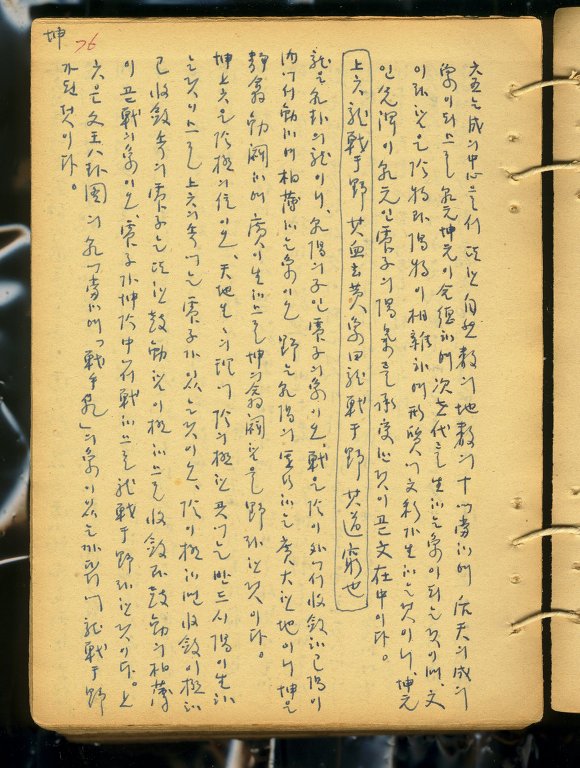 坤 76
六五는 成의 中心으로서 또한 自然數의 地數의 十에 當하야 先天의 成의
象이 되므로 乾元坤元이 合德하야 次世代를 生하는 象이 되는 것이며, 文
이라 함은 陰物과 陽物이 相雜하야 形質에 文彩가 生하는 것이니, 坤元
인 이 乾元인 震子의 陽氣를 承受한 것이 곧 文在中이다.
上六 龍戰于野 其血玄黃 象曰 龍戰于野 其道窮也
龍은 乾卦의 龍이니, 乾陽의 子인 震子의 象이오, 戰은 陰이 外에서 收斂하고 陽이
內에서 動하야 相薄하는 象이오 野는 乾陽의 하는 廣大한 地이니 坤은
靜翕動闢하야 廣이 生하므로 坤의 翕闢함을 野라 한 것이다。
坤上六은 陰極의 位이오, 天地生生의 理에 陰의 極한 곳에는 반드시 陽이 生하
는 것이므로 上六의 속에는 震子가 있는 것이오, 陰이 極하면 收斂이 極하
고 收斂 속의 震子는 또한 鼓動함이 極하므로 收斂과 鼓動의 相薄
이 곧 戰의 象이오, 震子가 坤陰中에서 戰하므로 龍戰于野라 한 것이다。上
六은 文王八卦圖의 乾에 當하야 「戰乎乾」의 象이 있는 까닭에 龍戰于野
가 된 것이다。